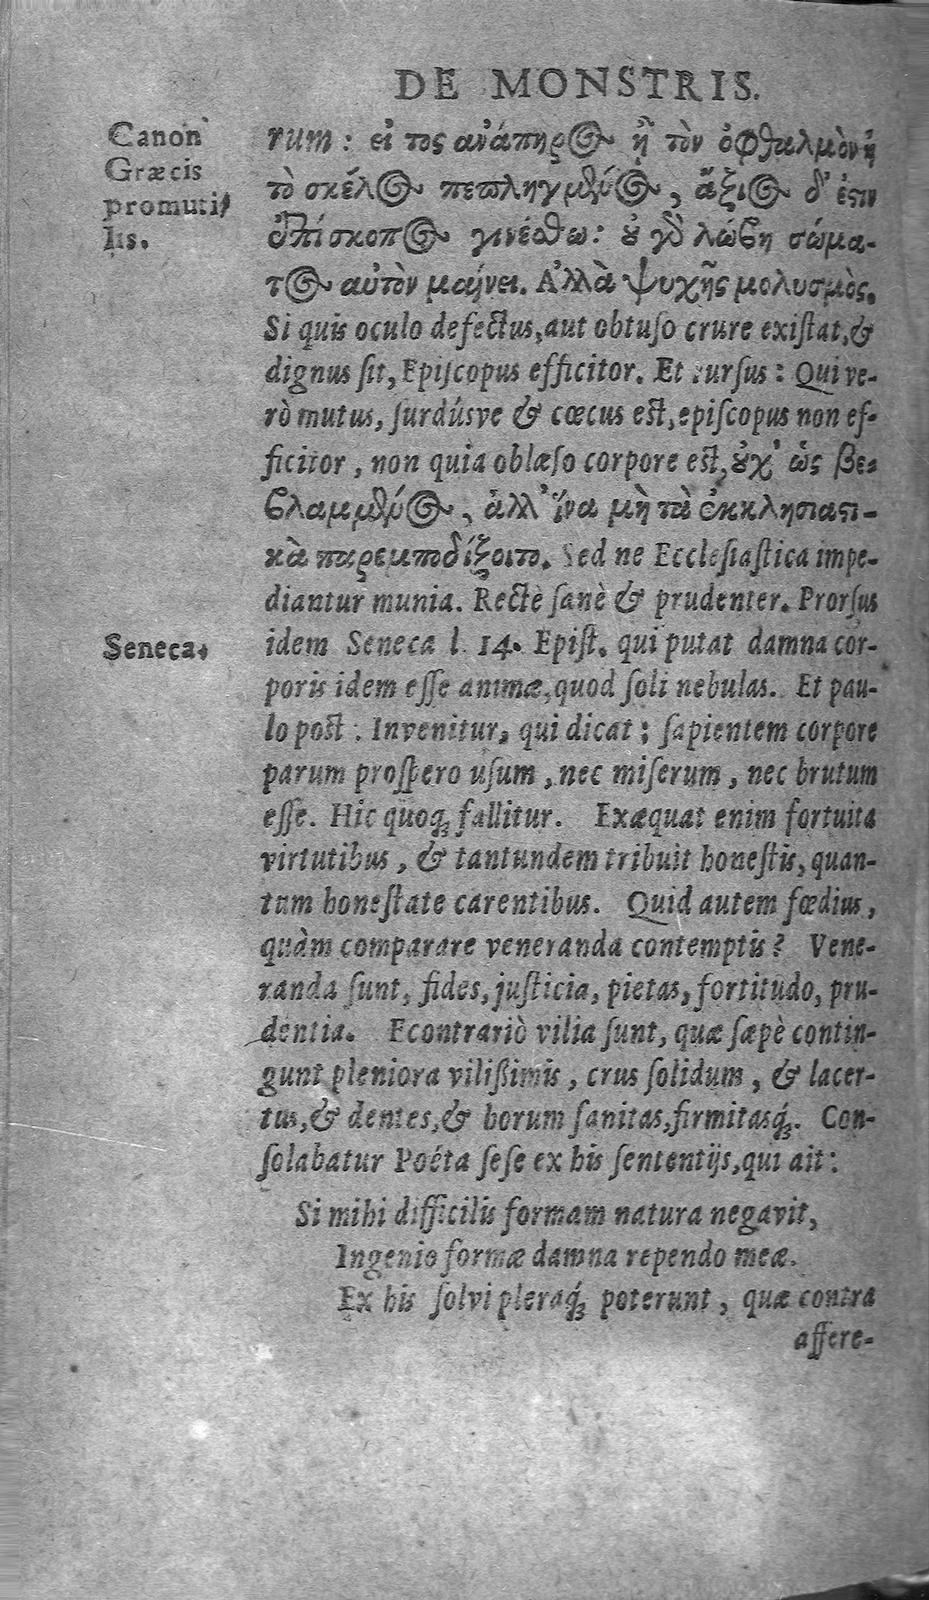 DE MONSTRIS.
Canon
Græcis
promuti-
lis.
rum: εἰ τος ἀνάπηρος ἢ τὸν ὀφθαλμὸν ἢ
τὸ σκέλος πεπληγμένος, ἄξιος δ' ἐστιν
ἐπίσκοπος γινέσθω: οὐ γὰρ λώβη σώμα-
τος αὐτὸν μαίνει. Ἀλλὰ ψυχῆς μολυσμὸς.
Si quis oculo defectus, aut obtuſo crure exiſtat, &
dignus ſit, Epiſcopus efficitor. Et rurſus: Qui ve-
rò mutus, ſurdúsve & cœcus eſt, epiſcopus non ef-
ficitor, non quia oblæſo corpore eſt, οὐχ' ὡς βε-
βλαμμένος, ἀλλ' ἵνα μὴ τὰ ἐκκλησιαστι-
κὰ παρεμποδίζοιτο. Sed ne Eccleſiaſtica impe-
diantur munia. Rectè ſanè & prudenter. Prorſus
Seneca.
idem Seneca l. 14. Epiſt. qui putat damna cor-
poris idem eſſe animæ, quod ſoli nebulas. Et pau-
lo poſt: Invenitur, qui dicat; ſapientem corpore
parum proſpero uſum, nec miſerum, nec brutum
eſſe. Hic quoq; fallitur. Exæquat enim fortuita
virtutibus, & tantundem tribuit honeſtis, quan-
tum honeſtate carentibus. Quid autem fœdius,
quàm comparare veneranda contemptis? Vene-
randa ſunt, fides, juſticia, pietas, fortitudo, pru-
dentia. Econtrariò vilia ſunt, quæ ſæpè contin-
gunt pleniora vilißimis, crus ſolidum, & lacer-
tus, & dentes, & horum ſanitas, firmitasq́;. Con-
ſolabatur Poéta ſeſe ex his ſententijs, qui ait:
Si mihi difficilis formam natura negavit,
Ingenio formæ damna rependo meæ.
Ex his ſolvi pleraq́; poterunt, quæ contra
affere-